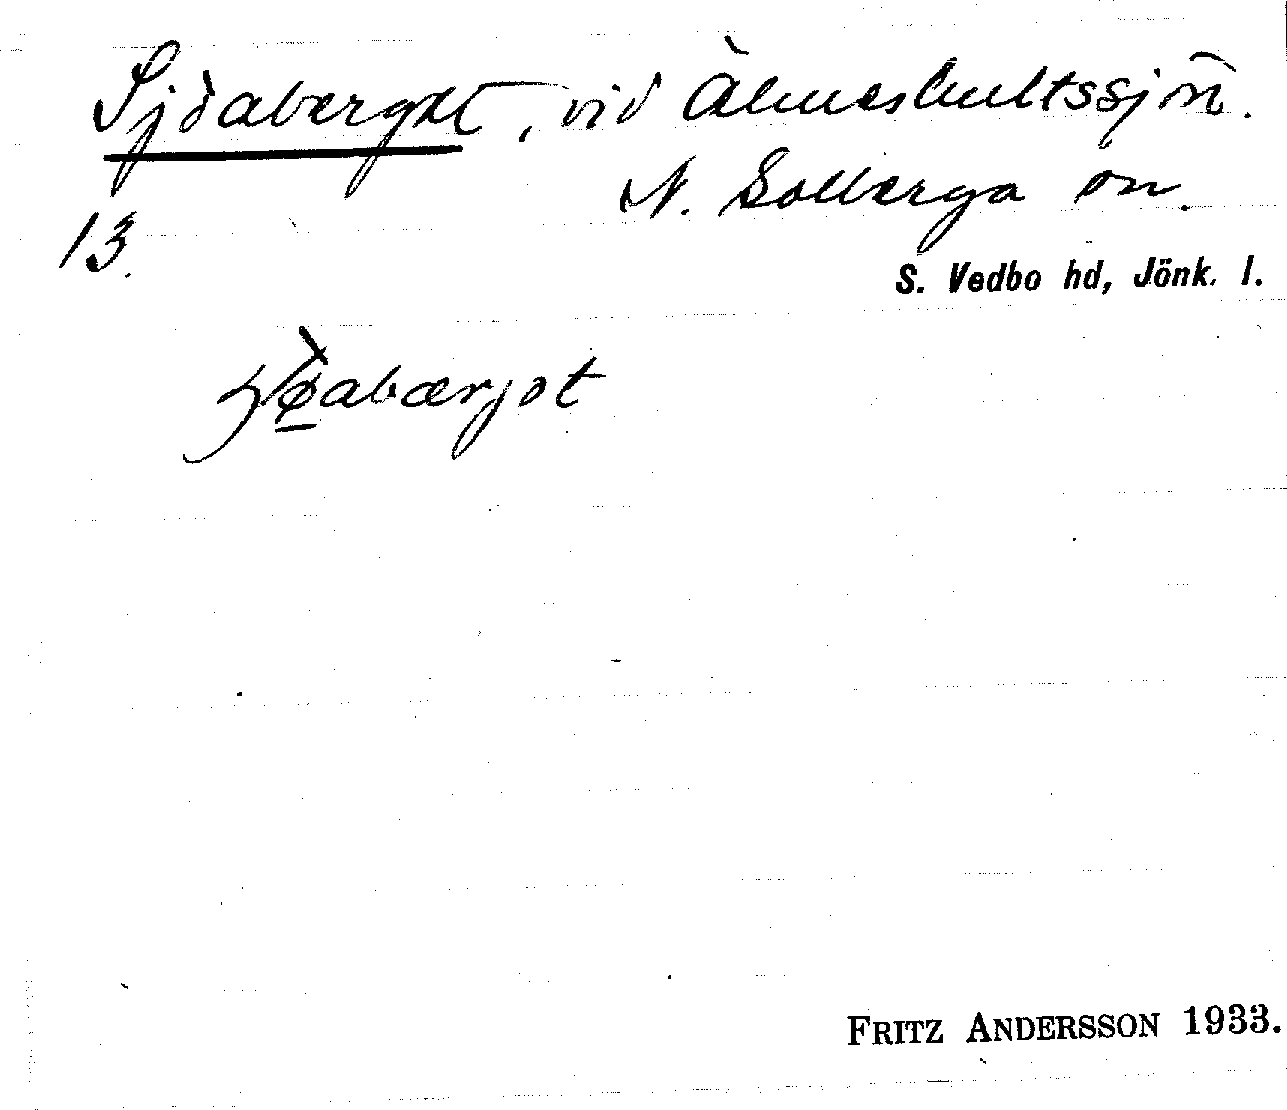 Sjöaberget, vid Älmeshultssjön.
N. Solberga sn.
13.
S. Vedbo hd, Jönk. l.
ʃø̀abærjət
FRITZ ANDERSSON 1933.